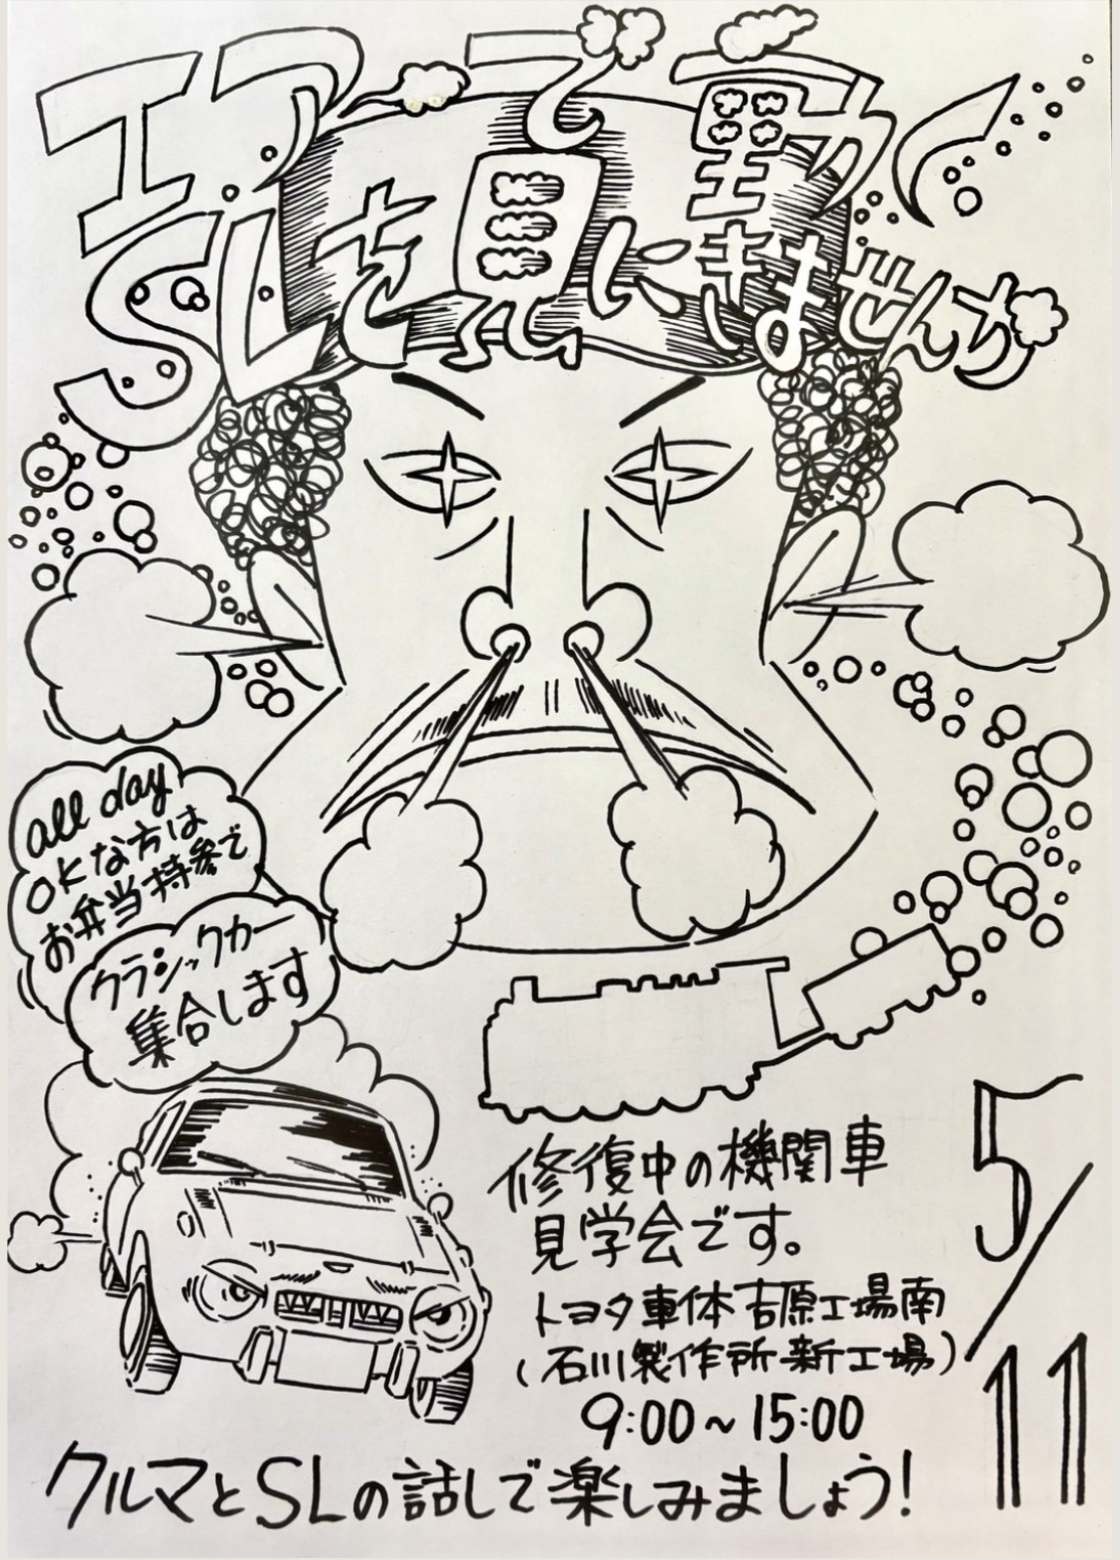 エアーで動く
SLを見にきませんか
all day
OKな方は
お弁当持参で
クラシックカー
集合します
修復中の機関車
見学会です。
トヨタ車体吉原工場南
(石川製作所新工場)
9:00~15:00
5/11
クルマとSLの話しで楽しみましょう!